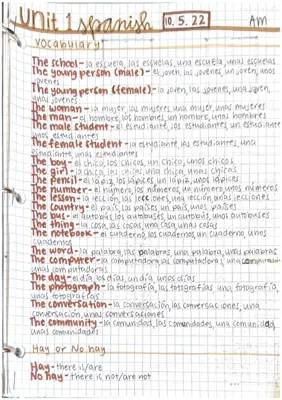 unit 1 spanish 10.5.22 AM
vocabulary
The school - la escuela, las escuelas, una escuela, unas escuelas
The young person (male) - el joven, los jovenes, un joven, unos
jovenes
The young person (female) - la joven, las jovenes, una joven,
unas jovenes
The woman - la mujer, las mujeres, una mujer, unas mujeres
The man - el hombre, los hombres, un hombre, unos hombres
The male student - el estudiante, los estudiantes, un estudiante
unos estudiantes
The female student - la estudiante, las estudiantes, una
estudiante, unas estudiantes
The boy - el chico, los chicos, un chico, unos chicos
The girl - la chica, las chicas, una chica, unas chicas
The pencil - el lápiz, los lápices, un lápiz, unos lápices
The number - el numero, los números, un número, unos números
The lesson - la lección, las lecciones, una lección, unas lecciones
The country - el país, los países, un país, unos países
The bus - el autobús, los autobuses, un autobús, unos autobuses
The thing - la cosa, las cosas, una cosa, unas cosas
The notebook - el cuaderno, los cuadernos, un cuaderno, unos
cuadernos
The word - la palabra, las palabras, una palabra, unas palabras
The computer - la computadora, las computadoras, una
unas computadoras
The day - el día, los días, un día, unos días
The photograph - la fotografía, las fotografías, una fotografía,
unas fotografías
The conversation - la conversación, las conversaciones, una
conversación, unas conversaciones
The community - la comunidad, las comunidades, una comunidad,
unas comunidades
Hay or No hay
Hay - there is/are
No hay - there is not/are not